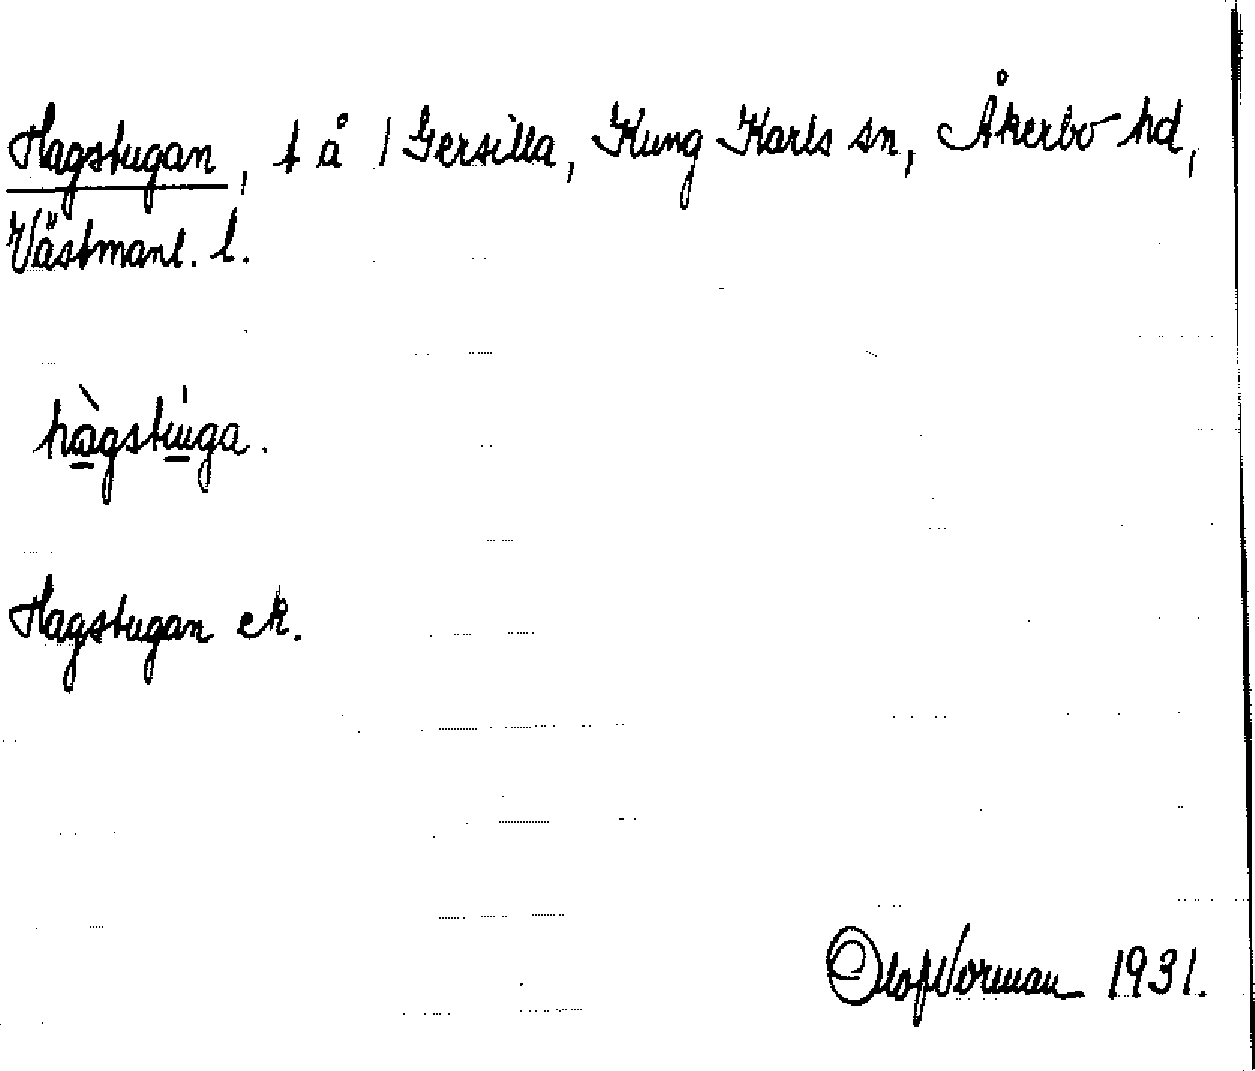 Hagstugan, t å 1 Gersilla, Kung Karls sn, Åkerbo hd,
Västmanl. l.
hàgstúga.
Hagstugan ek.
Olof Norman 1931.